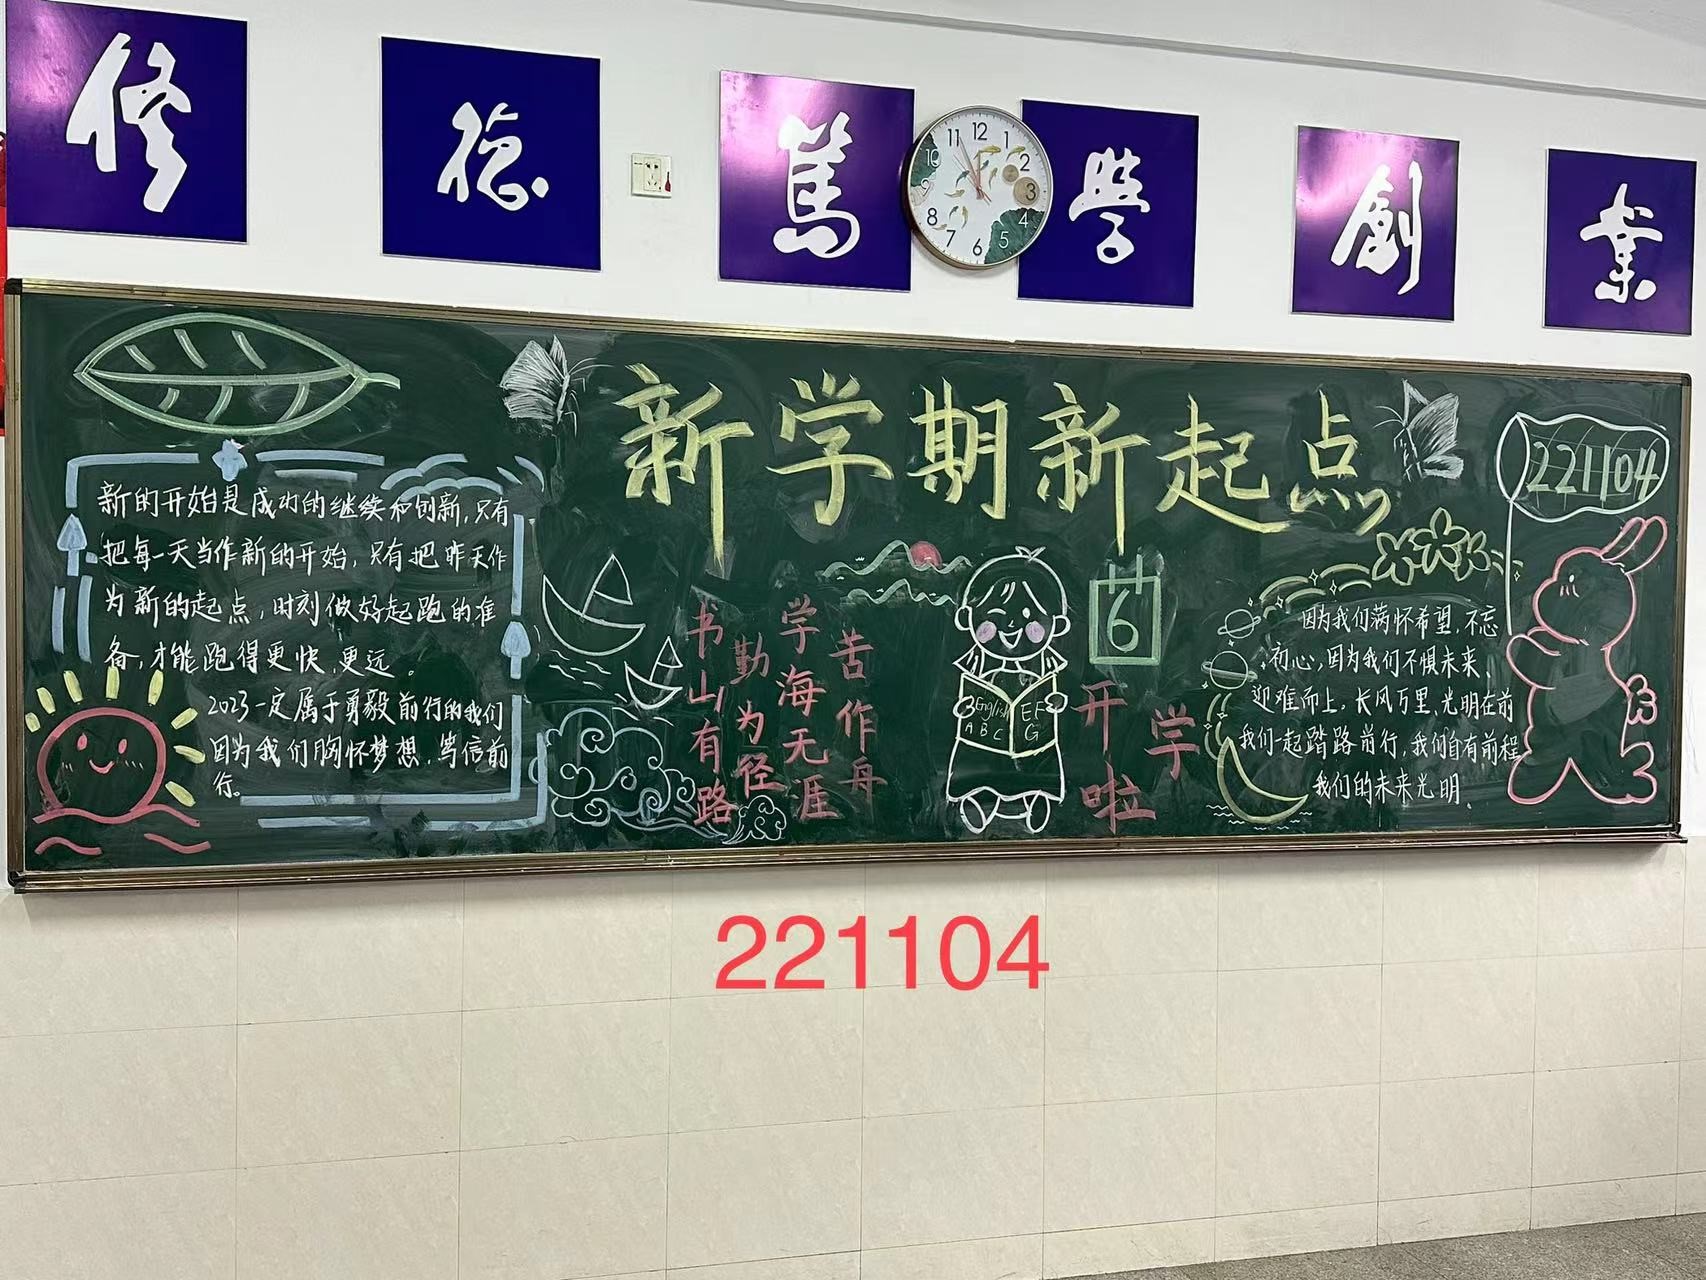 修 德 篤 學 創 業
11 12 1
10 2
9 3
8 4
7 6 5
新学期新起点
221104
新的开始是成功的继续和创新，只有
把每一天当作新的开始，只有把昨天作
为新的起点，时刻做好起跑的准
备，才能跑得更快、更远。
2023一定属于勇毅前行的我们
因为我们胸怀梦想，笃信前
行。
书山有路
勤为径
学海无涯
苦作舟
English
A B C
EF
G
6
开学
啦
因为我们满怀希望，不忘
初心，因为我们不惧未来、
迎难而上，长风万里、光明在前
我们一起踏路前行，我们自有前程
我们的未来光明、
221104